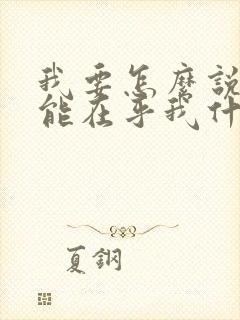 我要怎麼說
能在乎我什
夏鋼